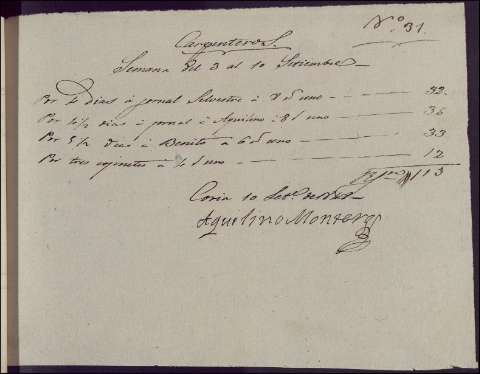 Nº 31.
Carpenteros.
Semana del 3 al 10 Setiembre
Por 4 dias á jornal Silvestre á 8 d uno 32.
Por 4 1/2 dias á jornal á Aquilino á 8 d uno 36
Por 5 1/2 dias á Benito á 6 d uno 33
Por tres á 4 d uno 12
113
Coria 10 Setᵉ de
Aquelino Monteros